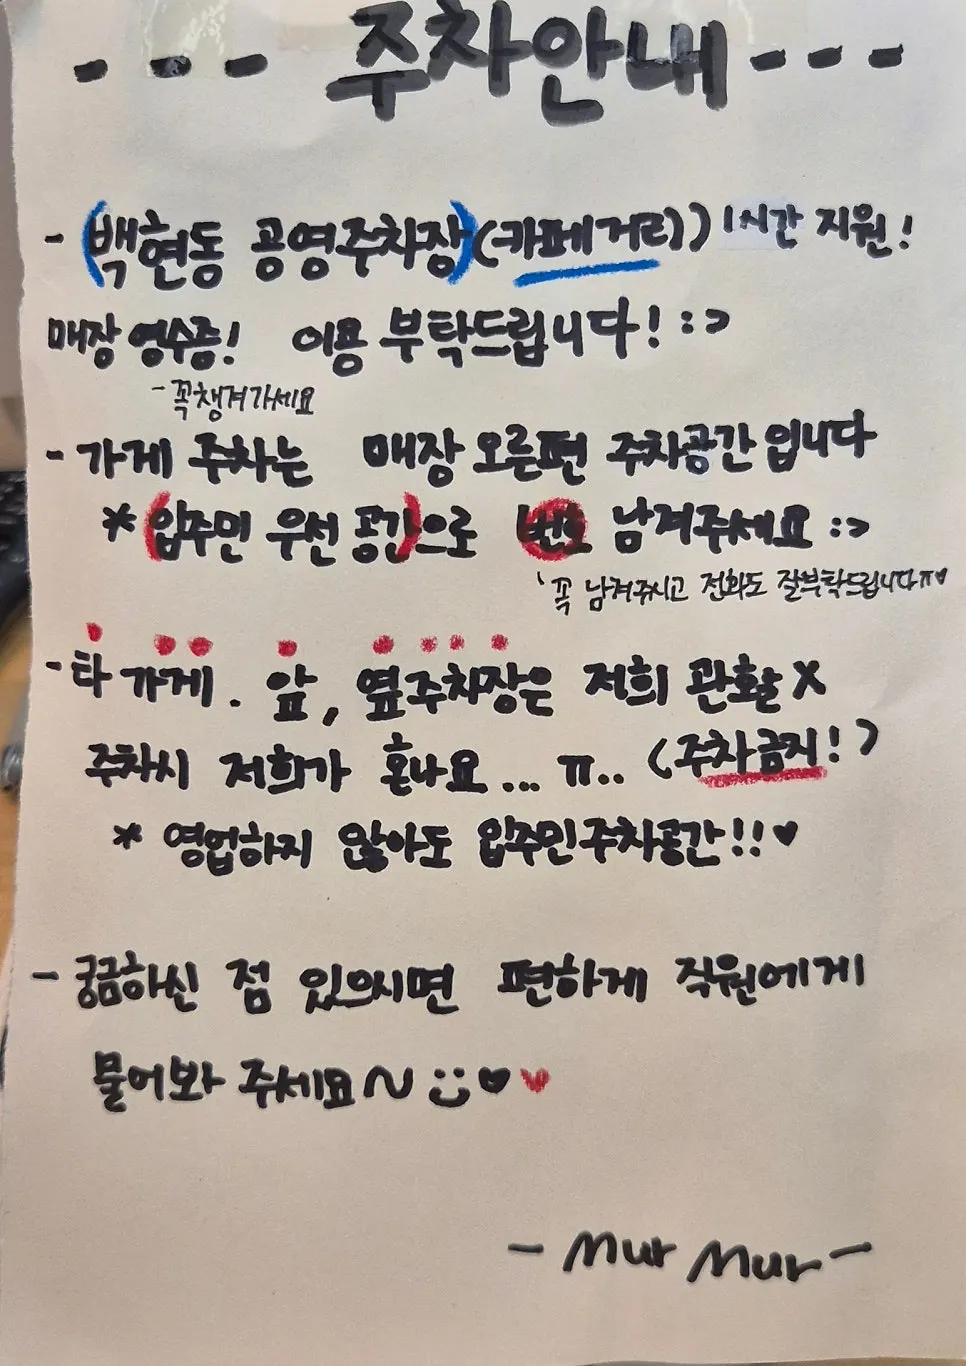 --- 주차안내 ---
- (백현동 공영주차장)(카페거리)) 1시간 지원!
매장 영수증! 이용 부탁드립니다! :>
- 꼭 챙겨가세요
- 가게 주차는 매장 오른편 주차공간 입니다
* (입주민 우선 공간)으로 번호 남겨주세요 :>
꼭 남겨주시고 전화도 잘부탁드립니다ㅠ♥
- 타 가게. 앞, 옆 주차장은 저희 관할 X
주차시 저희가 혼나요... ㅠ.. (주차금지!)
* 영업하지 않아도 입주민 주차공간!!♥
- 궁금하신 점 있으시면 편하게 직원에게
물어봐 주세요~ :) ♥ ♥
- Mur Mur -